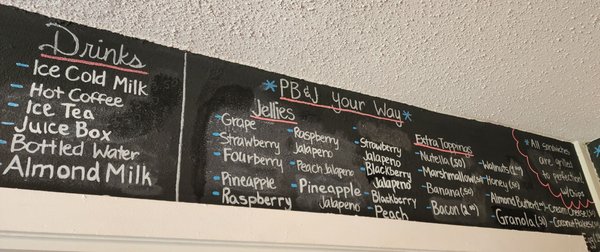 Drinks
- Ice Cold Milk
- Hot Coffee
- Ice Tea
- Juice Box
- Bottled Water
- Almond Milk
* PB&J Your Way *
Jellies
- Grape
- Strawberry
- Fourberry
- Pineapple
- Raspberry
- Raspberry
Jalapeno
- Peach Jalapeno
- Pineapple
Jalapeno
- Strawberry
Jalapeno
- Blackberry
Jalapeno
- Blackberry
- Peach
Extra Toppings
- Nutella (.50)
- Marshmallow (.50)
- Banana (.50)
- Bacon (2.00)
- Walnuts
- Honey (.50)
- Almond Butter
- Granola (.50)
- Cream Cheese
- Coconut Flakes
* All Sandwiches
are Grilled
to perfection!
w/ chips